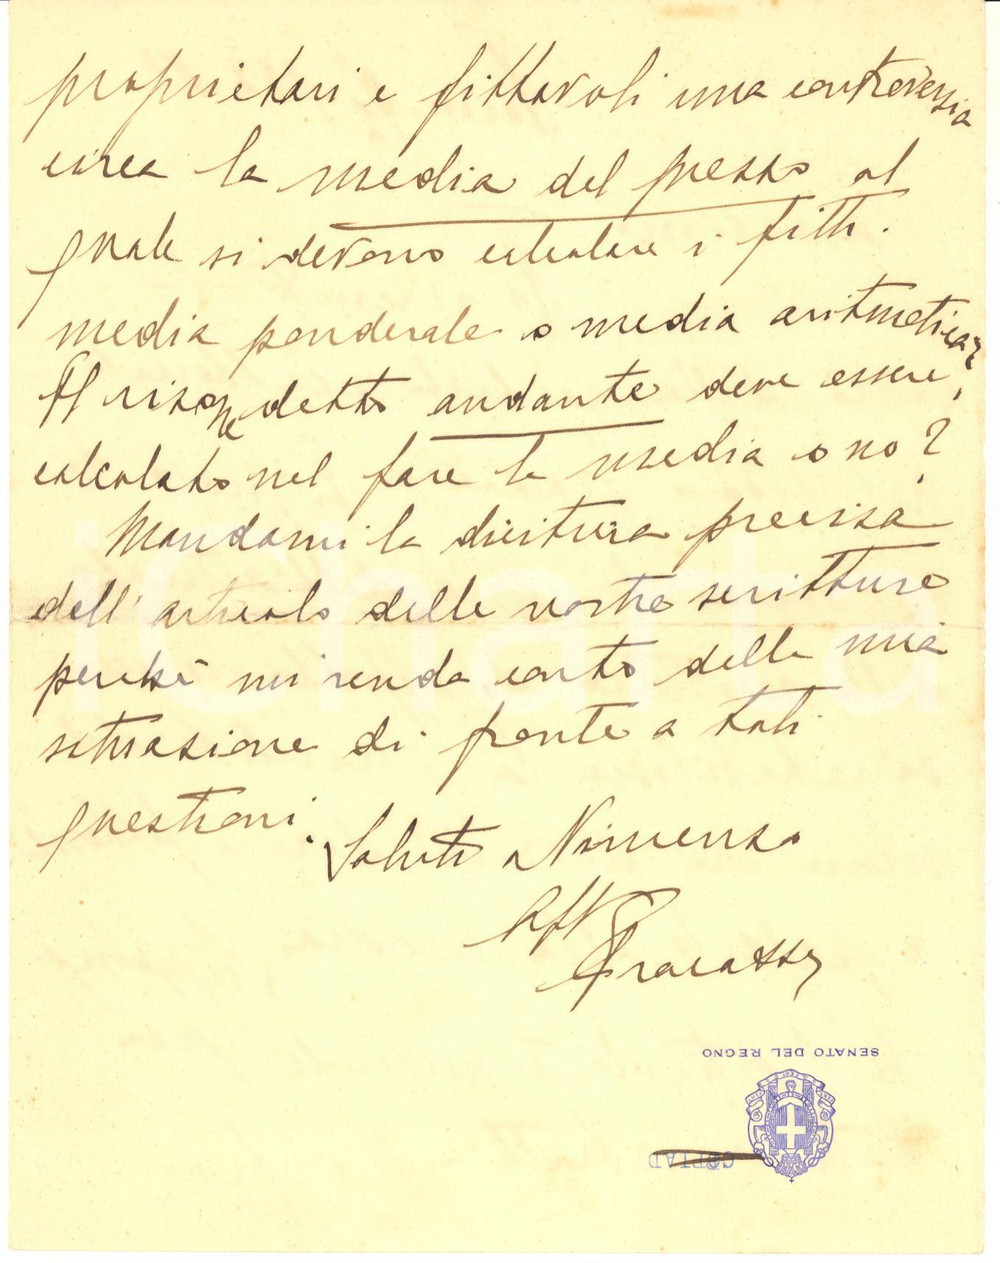 proprietari e fittavoli una controversia
circa la media del prezzo al
quale si devono calcolare i fitti.
media ponderale o media aritmetica?
Il risone detto andante deve essere
calcolato nel fare la media o no?
Mandami la dicitura precisa
dell'articolo delle vostre scritture
perché mi renda conto della mia
situazione di fronte a tali
questioni.
Saluti a Vincenzo
Aff
Fracassi
SENATO DEL REGNO
iCharta